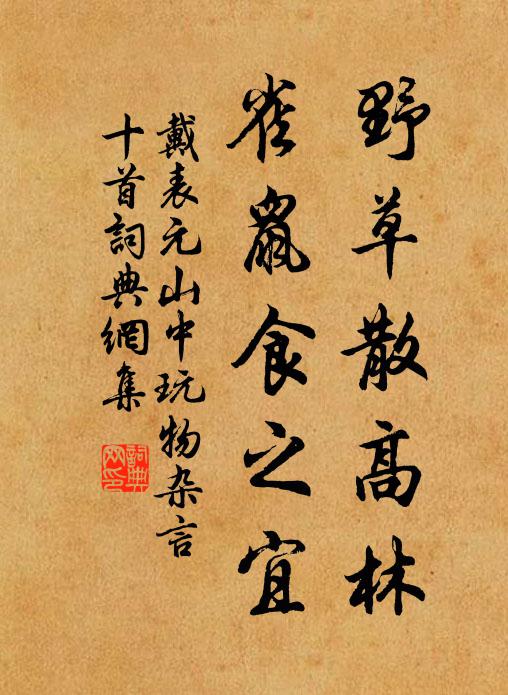 野草散高林
雀鼠食之宜
戴表元山中玩物杂言
十首詞典網集
詞典網印